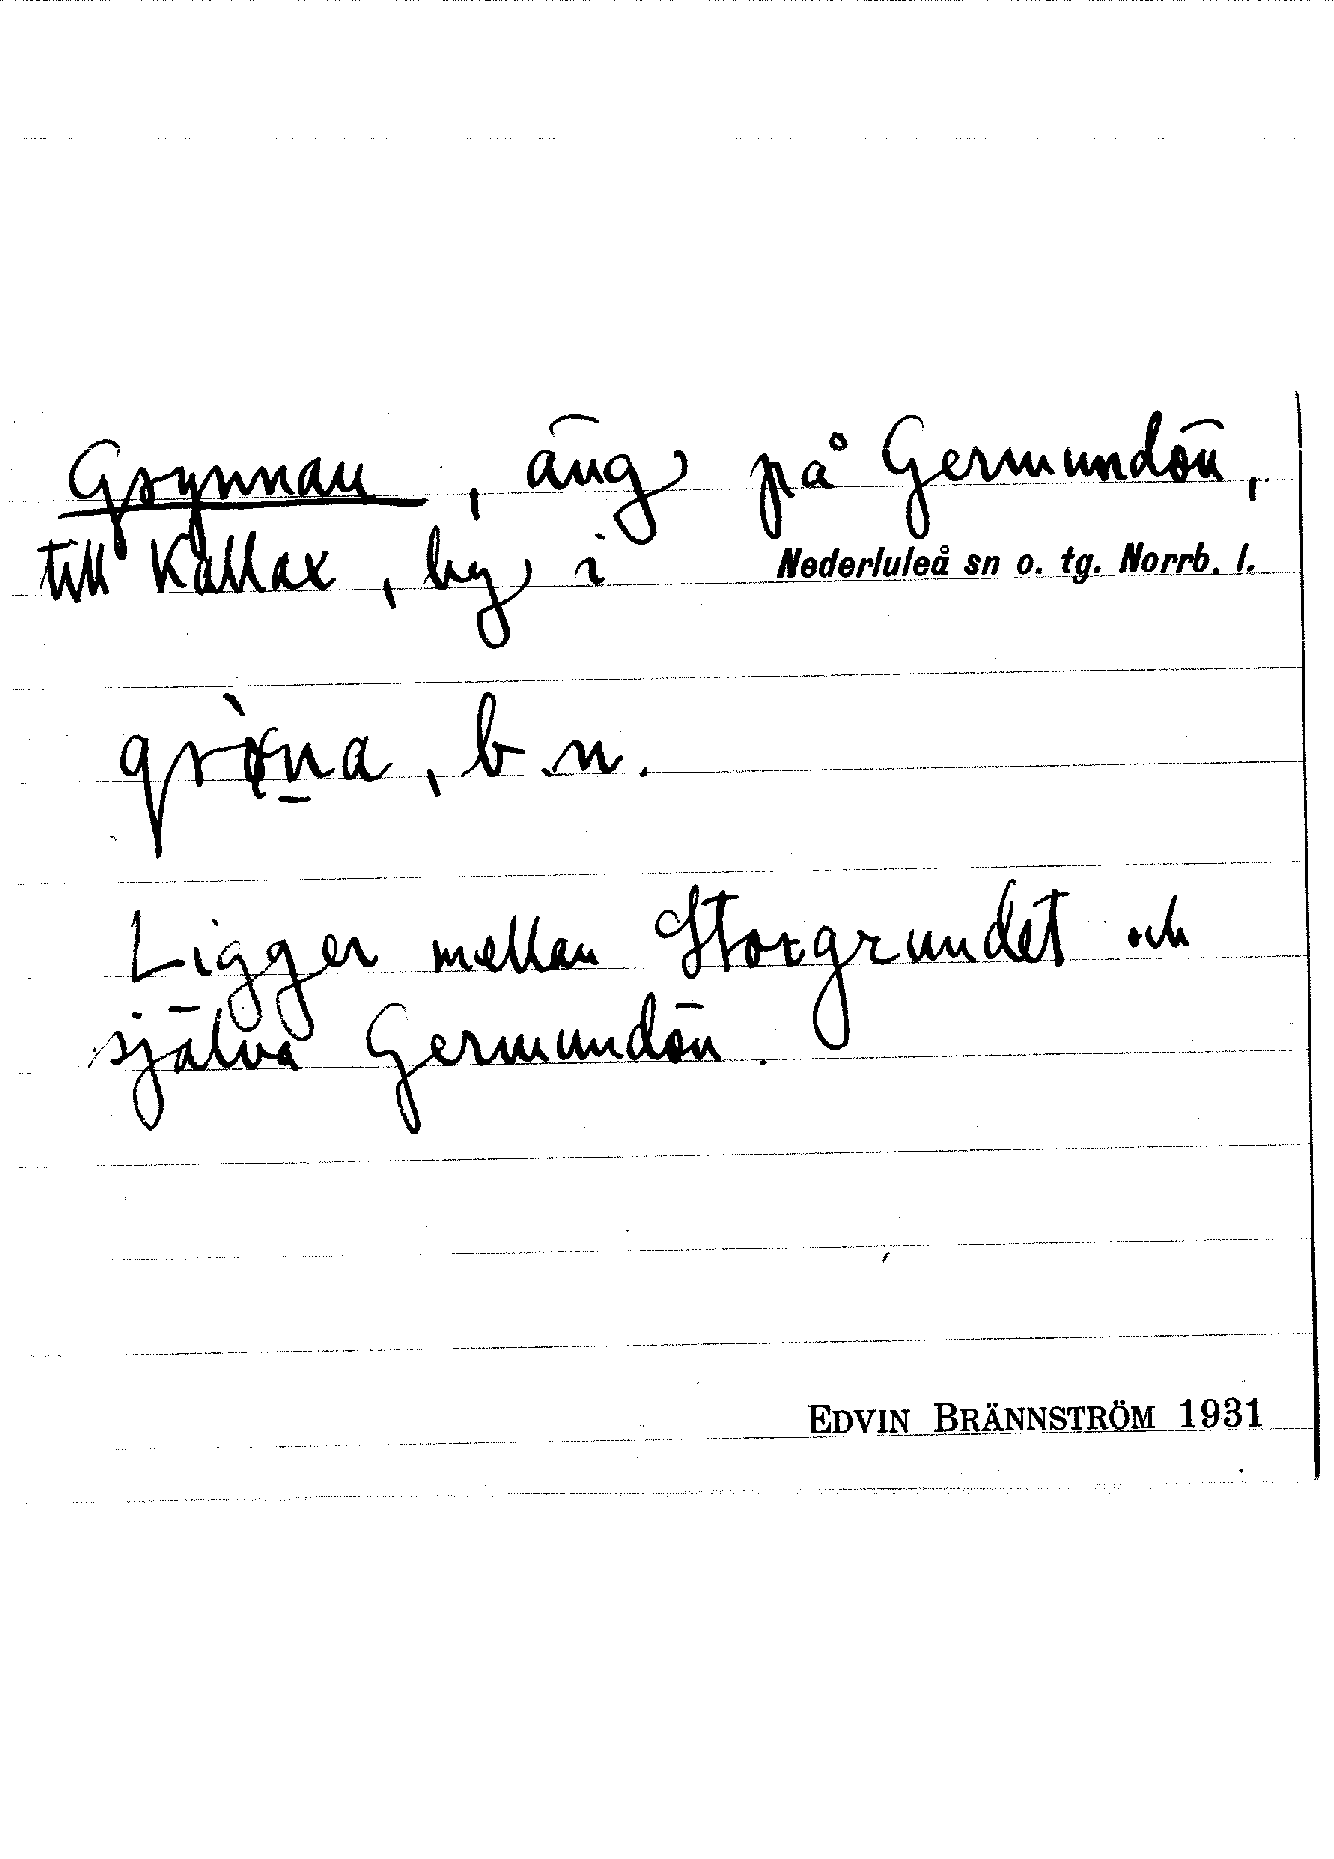 Grynnan, äng på Germundön,
till Kallax, by i Nederluleå sn o. tg. Norrb. l.
b. n.
Ligger mellan Storgrundet och
själva Germundön.
EDVIN BRÄNNSTRÖM 1931